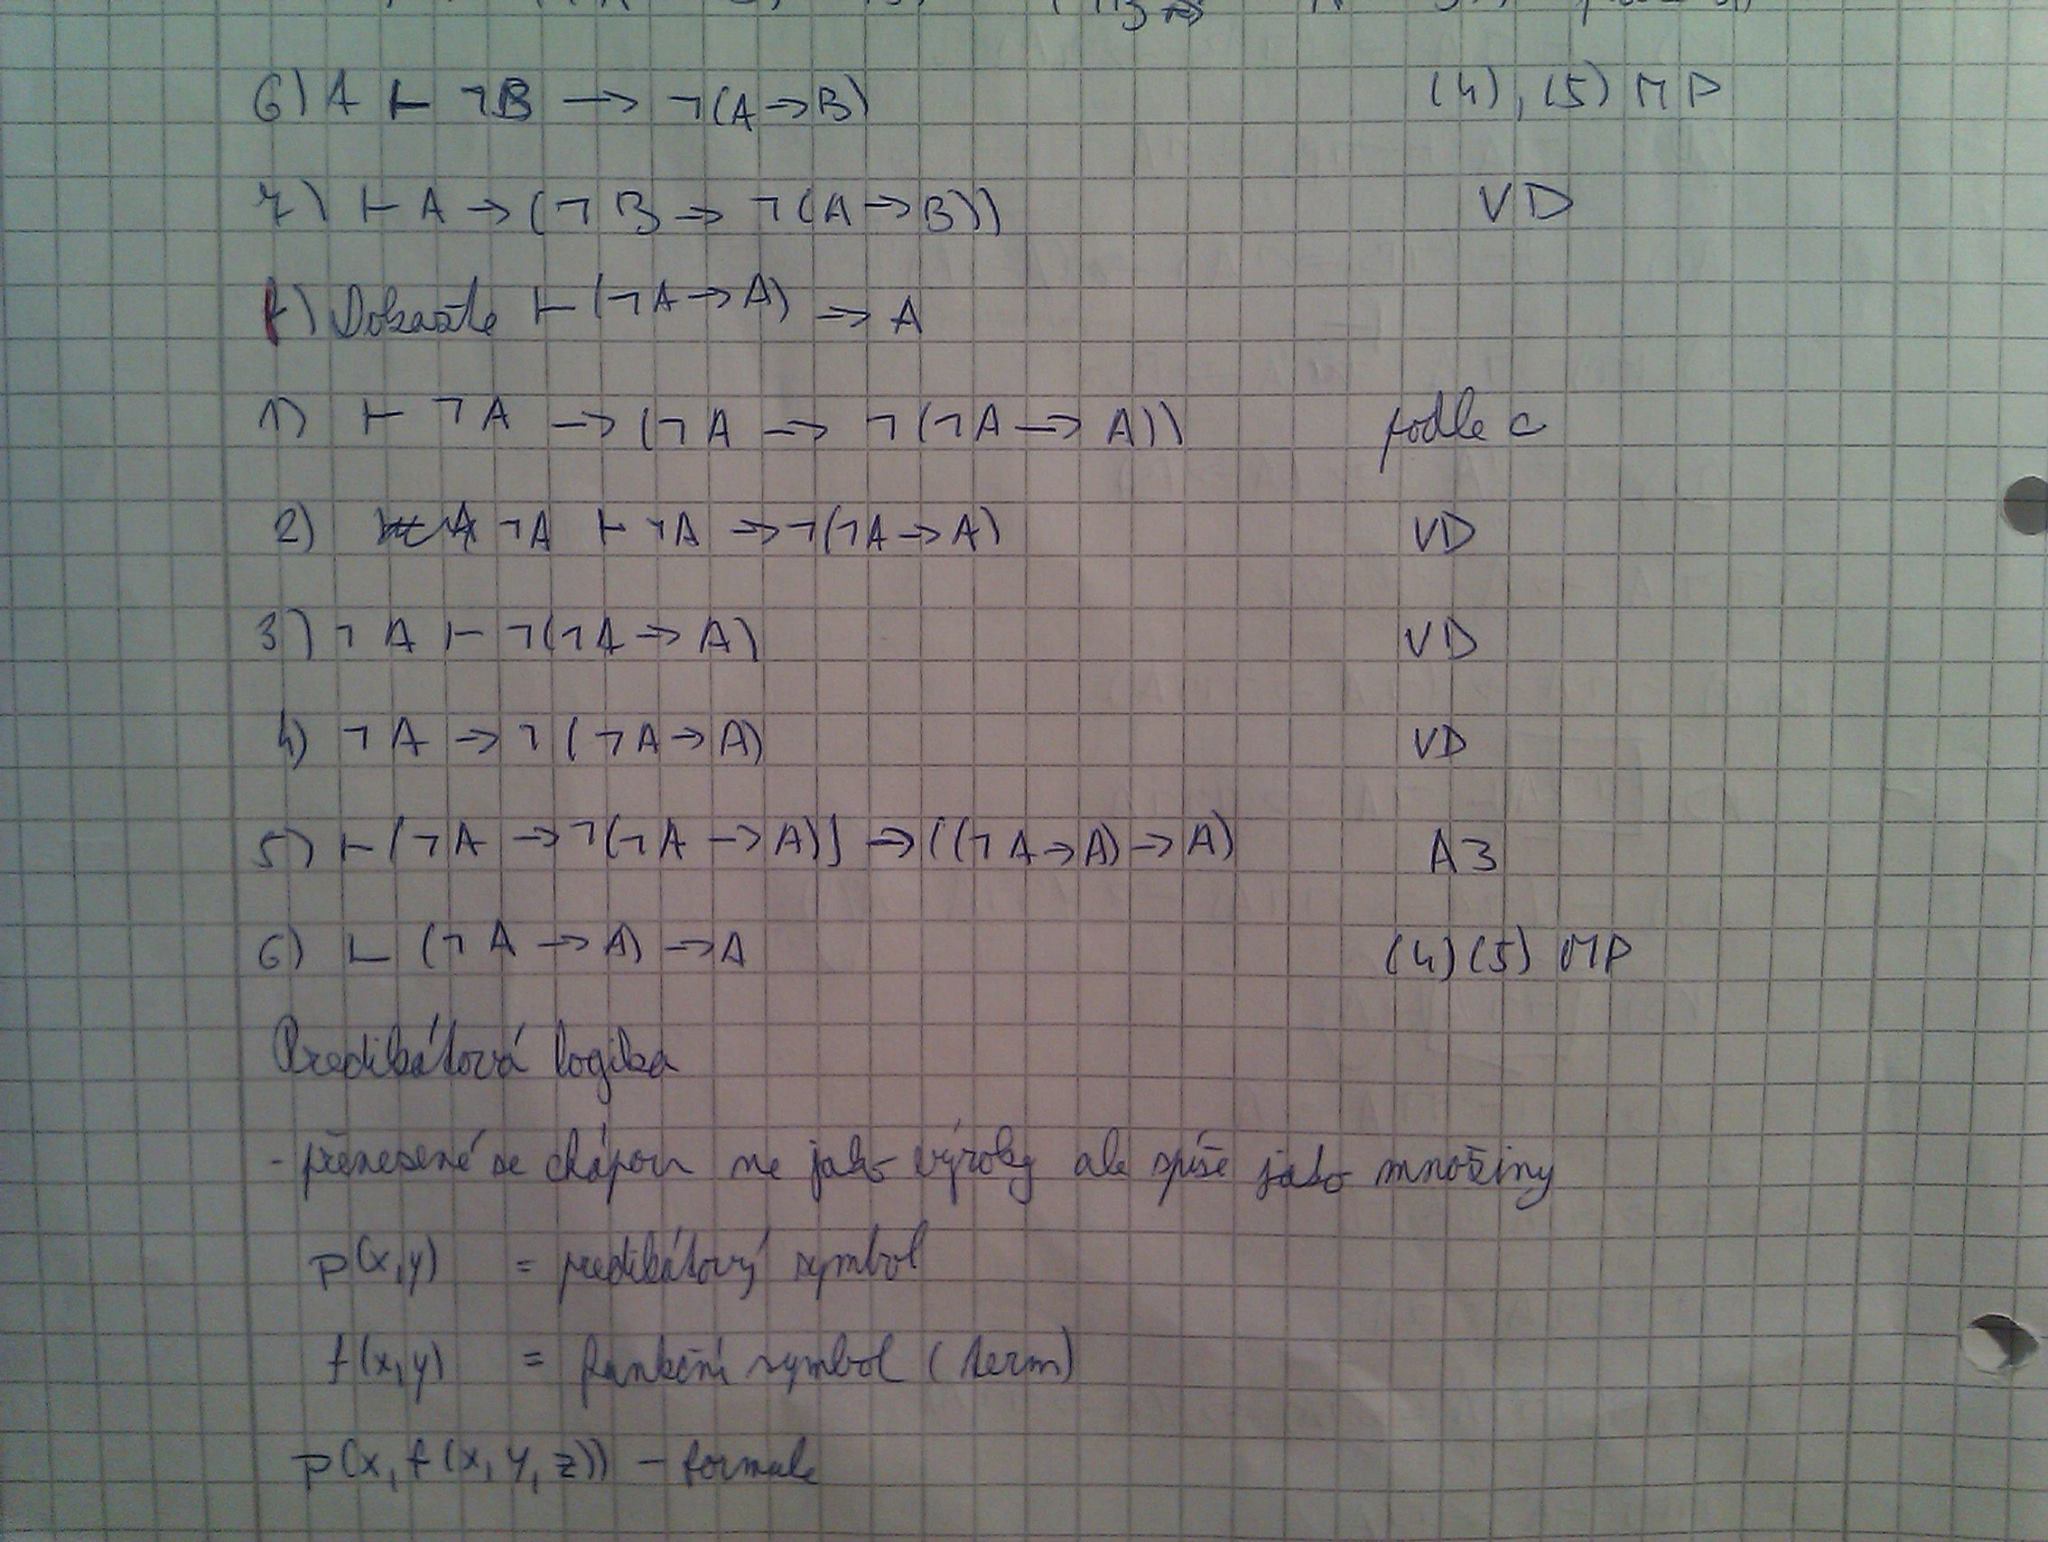 6) A ⊢ ¬B → ¬(A→B) (4), (5) MP
7) ⊢ A → (¬B → ¬(A→B)) VD
f) Dokažte ⊢ (¬A→A) → A
1) ⊢ ¬A → (¬A → ¬(¬A → A)) podle c
2) ¬A ⊢ ¬A → ¬(¬A→A) VD
3) ¬A ⊢ ¬(¬A → A) VD
4) ¬A → ¬(¬A→A) VD
5) ⊢ (¬A → ¬(¬A → A)) → ((¬A→A)→A) A3
6) ⊢ (¬A → A) → A (4)(5) MP
Predikátová logika
- přenesené se chápou ne jako výroky ale spíše jako množiny
p(x,y) = predikátový symbol
f(x,y) = funkční symbol (term)
p(x, f(x, y, z)) - formule